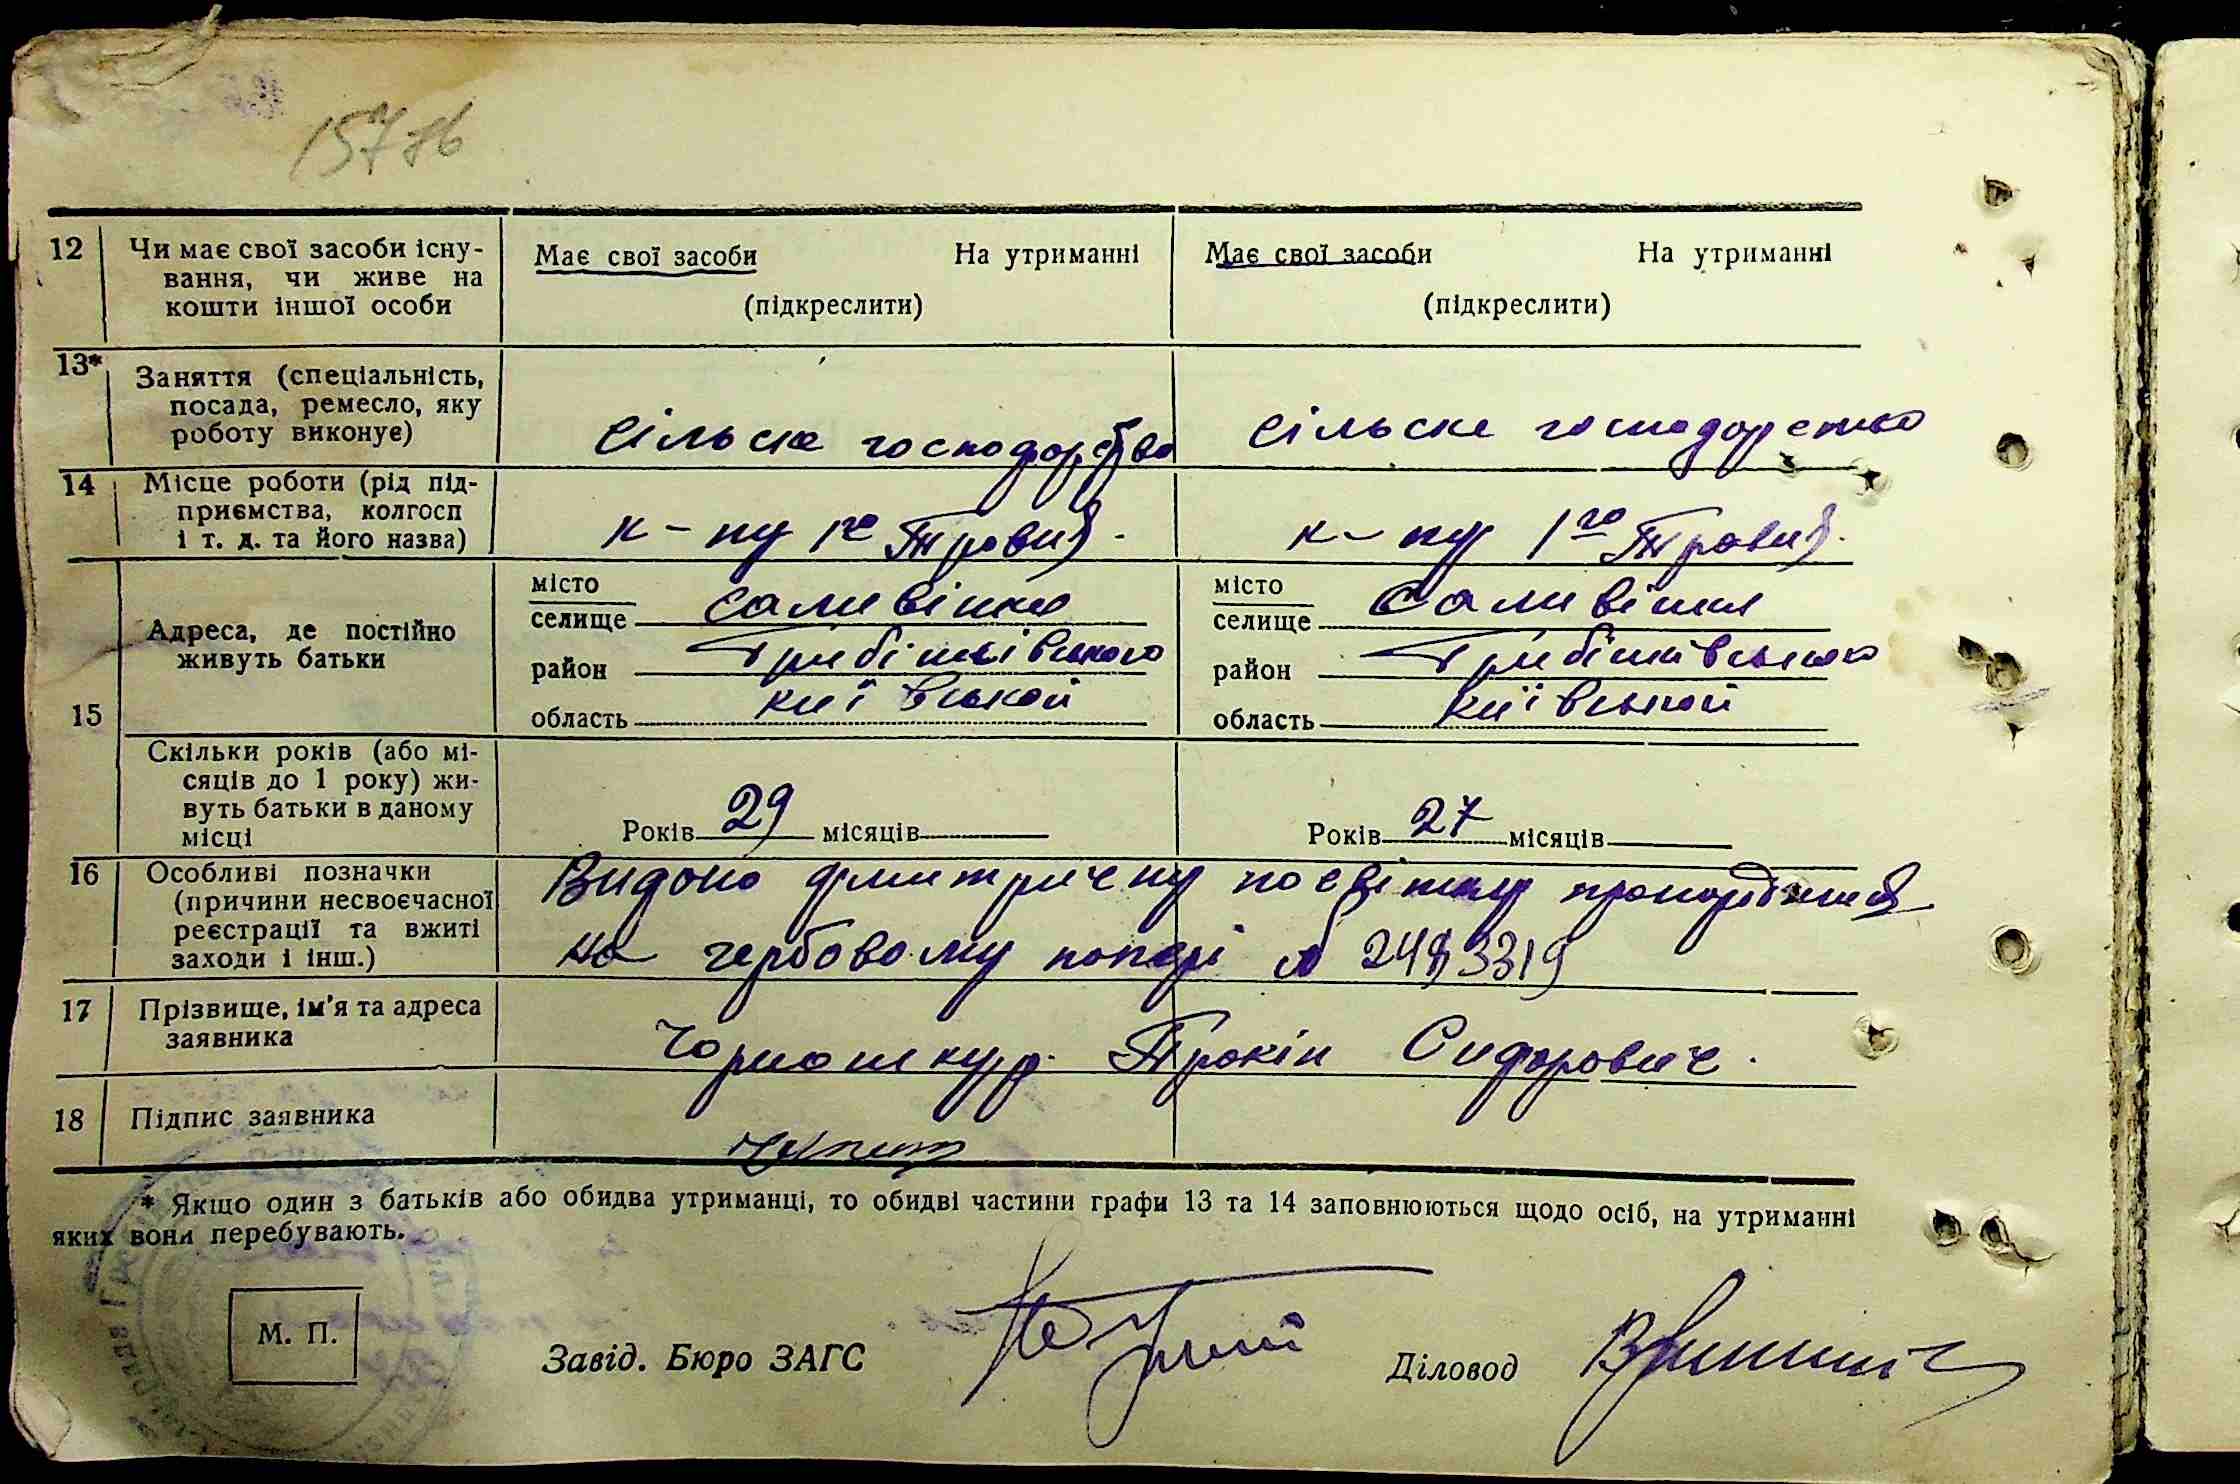 157 76
12 Чи має свої засоби існу- Має свої засоби На утриманні Має свої засоби На утриманні
вання, чи живе на
кошти іншої особи (підкреслити) (підкреслити)
13* Заняття (спеціальність,
посада, ремесло, яку
роботу виконує) сільске господарство сільске господарство
14 Місце роботи (рід під-
приємства, колгосп
і т. д. та його назва) к-пу 1го Травня. к-пу 1го Травня.
15 Адреса, де постійно
живуть батьки
місто місто
селище Саливінки селище Саливінки
район Грибінківського район Грибінківського
область київской область київской
Скільки років (або мі-
сяців до 1 року) жи-
вуть батьки в даному
місці Років 29 місяців Років 27 місяців
16 Особливі позначки
(причини несвоєчасної
реєстрації та вжиті
заходи і інш.)
Видано метричну посвітку
на гербовому папері № 2483319
17 Прізвище, ім'я та адреса
заявника Чорношкур Прокіп Сидорович.
18 Підпис заявника
* Якщо один з батьків або обидва утриманці, то обидві частини графи 13 та 14 заповнюються щодо осіб, на утриманні
яких вони перебувають.
М. П. Завід. Бюро ЗАГС Діловод